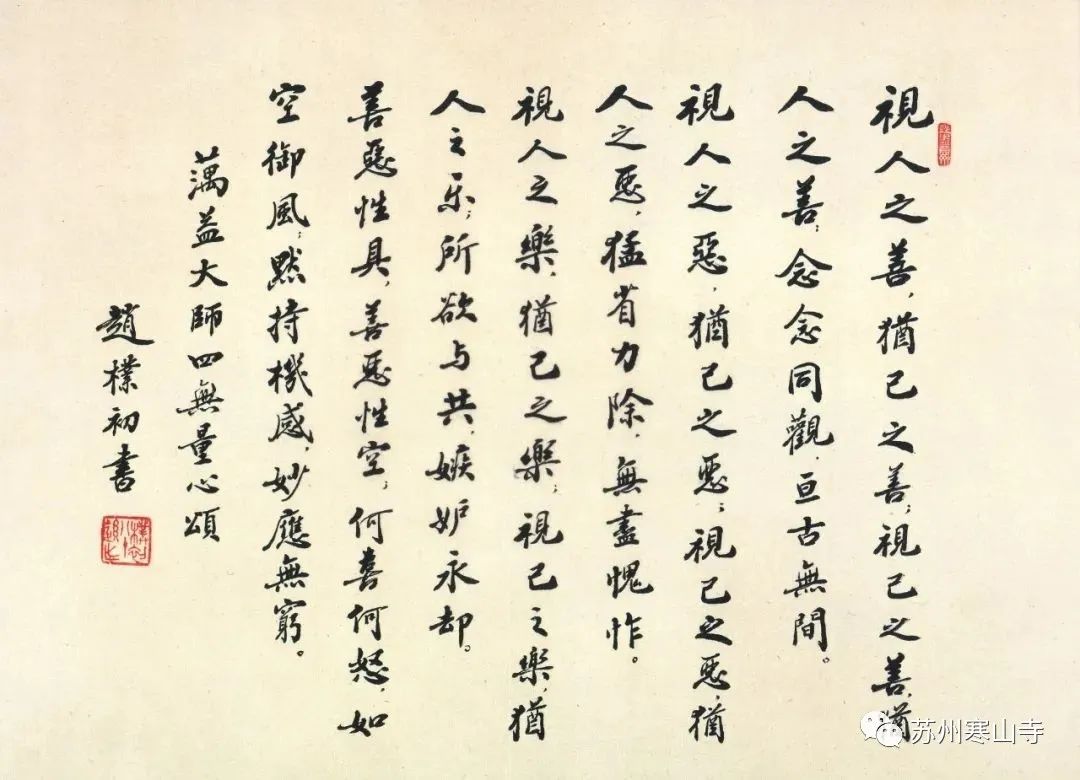 視人之善，猶己之善；視己之善，猶
人之善；念念同觀，亘古無間。
視人之惡，猶己之惡；視己之惡，猶
人之惡，猛省力除，無盡愧怍。
視人之樂，猶己之樂；視己之樂，猶
人之乐；所欲与共，嫉妒永却。
善惡性具，善惡性空，何喜何怒，如
空御風；默持機感，妙應無窮。
蕅益大師四無量心頌
趙樸初書
苏州寒山寺